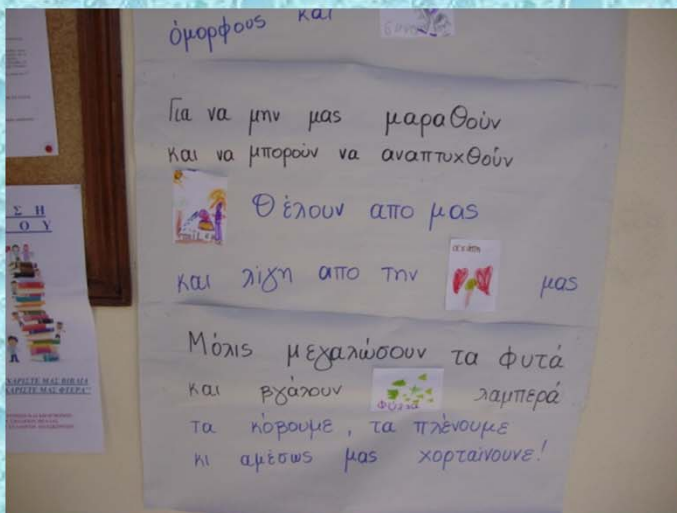 όμορφους και
Για να μην μας μαραθούν
και να μπορούν να αναπτυχθούν
Θέλουν απο μας
και λίγη απο την αγάπη μας
Μόλις μεγαλώσουν τα φυτά
και βγάλουν φύλλα λαμπερά
τα κόβουμε, τα πλένουμε
κι αμέσως μας χορταίνουνε!
Σ Η
Τ Ο Υ
ΧΑΡΙΣΤΕ ΜΑΣ ΒΙΒΛΙΑ
ΧΑΡΙΣΤΕ ΜΑΣ ΦΤΕΡΑ"